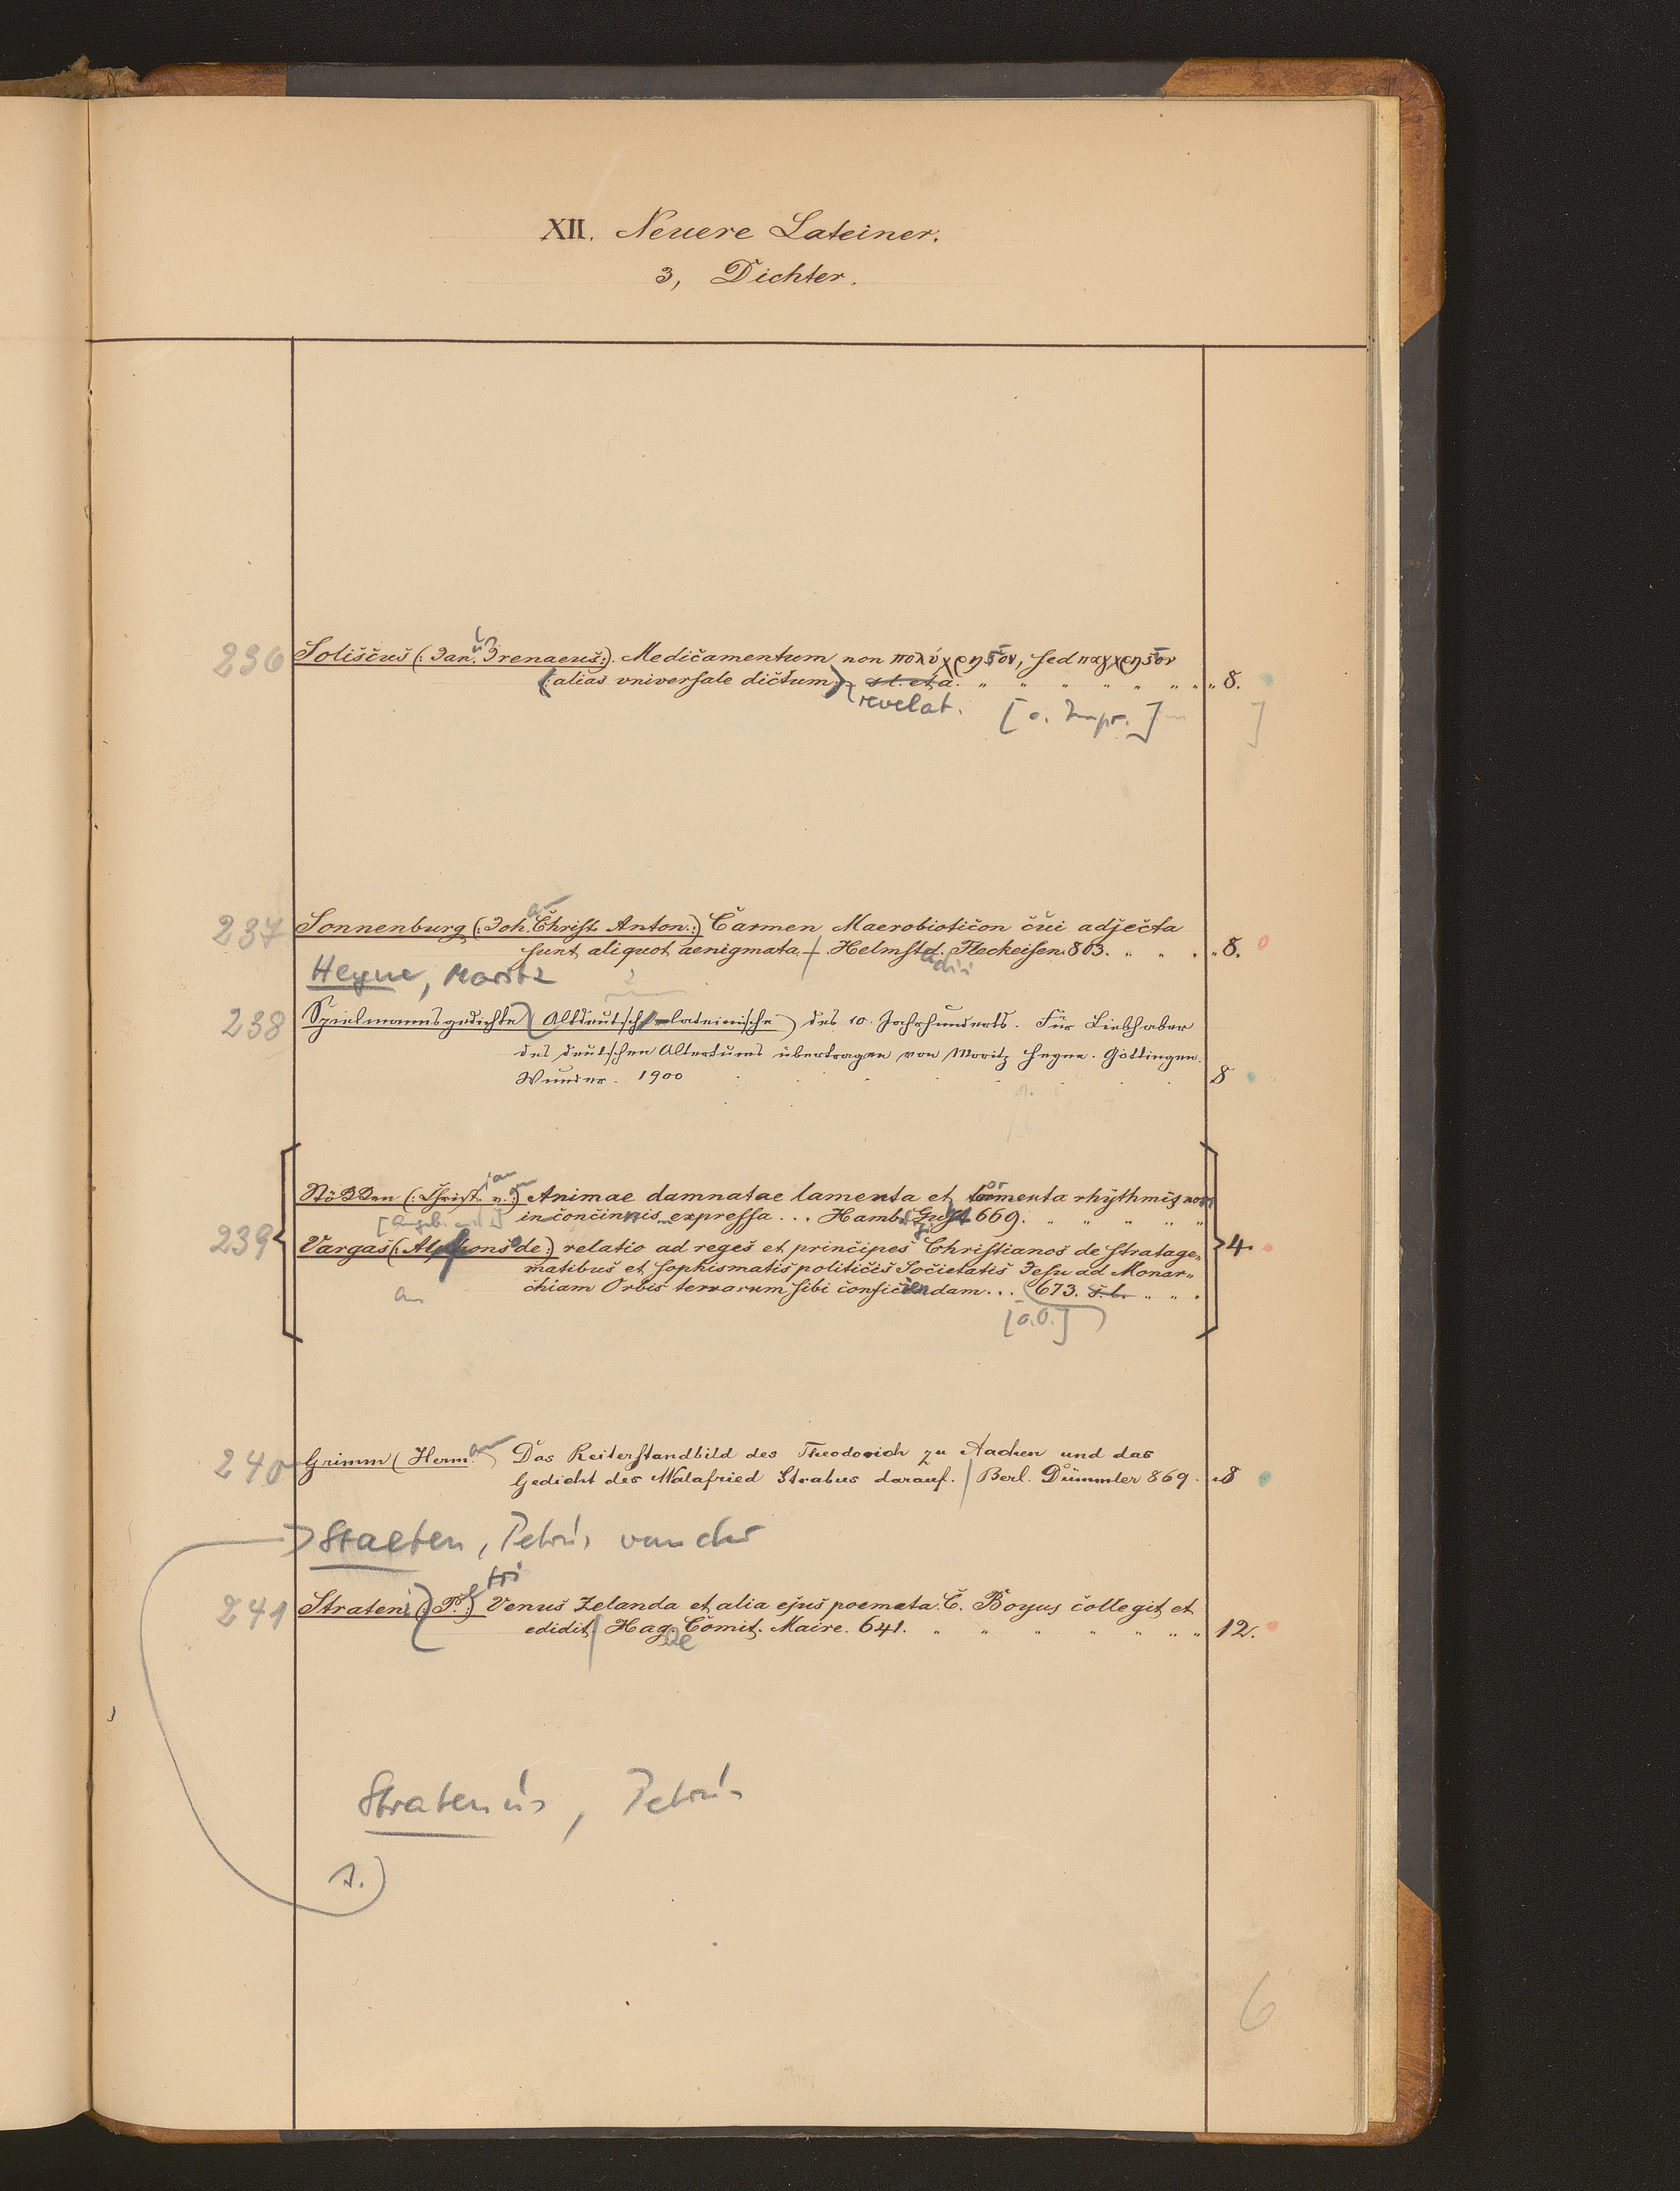 XII. Neuere Lateiner.
3, Dichter.
236 Soliscus (: Jan. Irenaeus:). Medicamentum non πολύχρηϛον, sed παγχρηϛον
(: alias universale dictum:). s. l. et a. „ „ „ „ „ „ „ 8.
revelat. [o. Impr.] ]
237 Sonnenburg (: Joh. Christ. Anton.:) Carmen Macrobioticon cui adjecta
sunt aliquot aenigmata. Helmstd. Fleckeisen 803. „ „ „ 8.
adii
Heyne, Moritz
238 Spielmannsgedichte (Altdeutsch-lateinische) des 10. Jahrhunderts. Für Liebhaber
des deutschen Altertums übertragen von Moritz Heyne. Göttingen.
Wunder. 1900 8
ian
(: Christ. v.:) Animae damnatae lamenta et tormenta rhythmis non
inconcinnis expressa ... Hamb. 669. „ „ „ „ „
239 Vargas (: Alphons de:) relatio ad reges et principes Christianos de stratage„
matibus et sophismatis politicis Societatis Jesu ad Monar„ 4.
chiam Orbis terrarum sibi conficiendam ... 673. s. l. „ „ „
[o.O.]
240 Grimm (Herm. Das Reiterstandbild des Theodorich zu Aachen und das
Gedicht des Walafried Strabus darauf. Berl. Dümmler 869. „8
Staeten, Petrus van der
tri
241 Strateni (: P.:) Venus Zelanda et alia ejus poemata. C. Boyus collegit et
edidit. Hag. Comit. Maire. 641. „ „ „ „ „ „ „ 12.
ae
Stratenus, Petrus
s.)
6